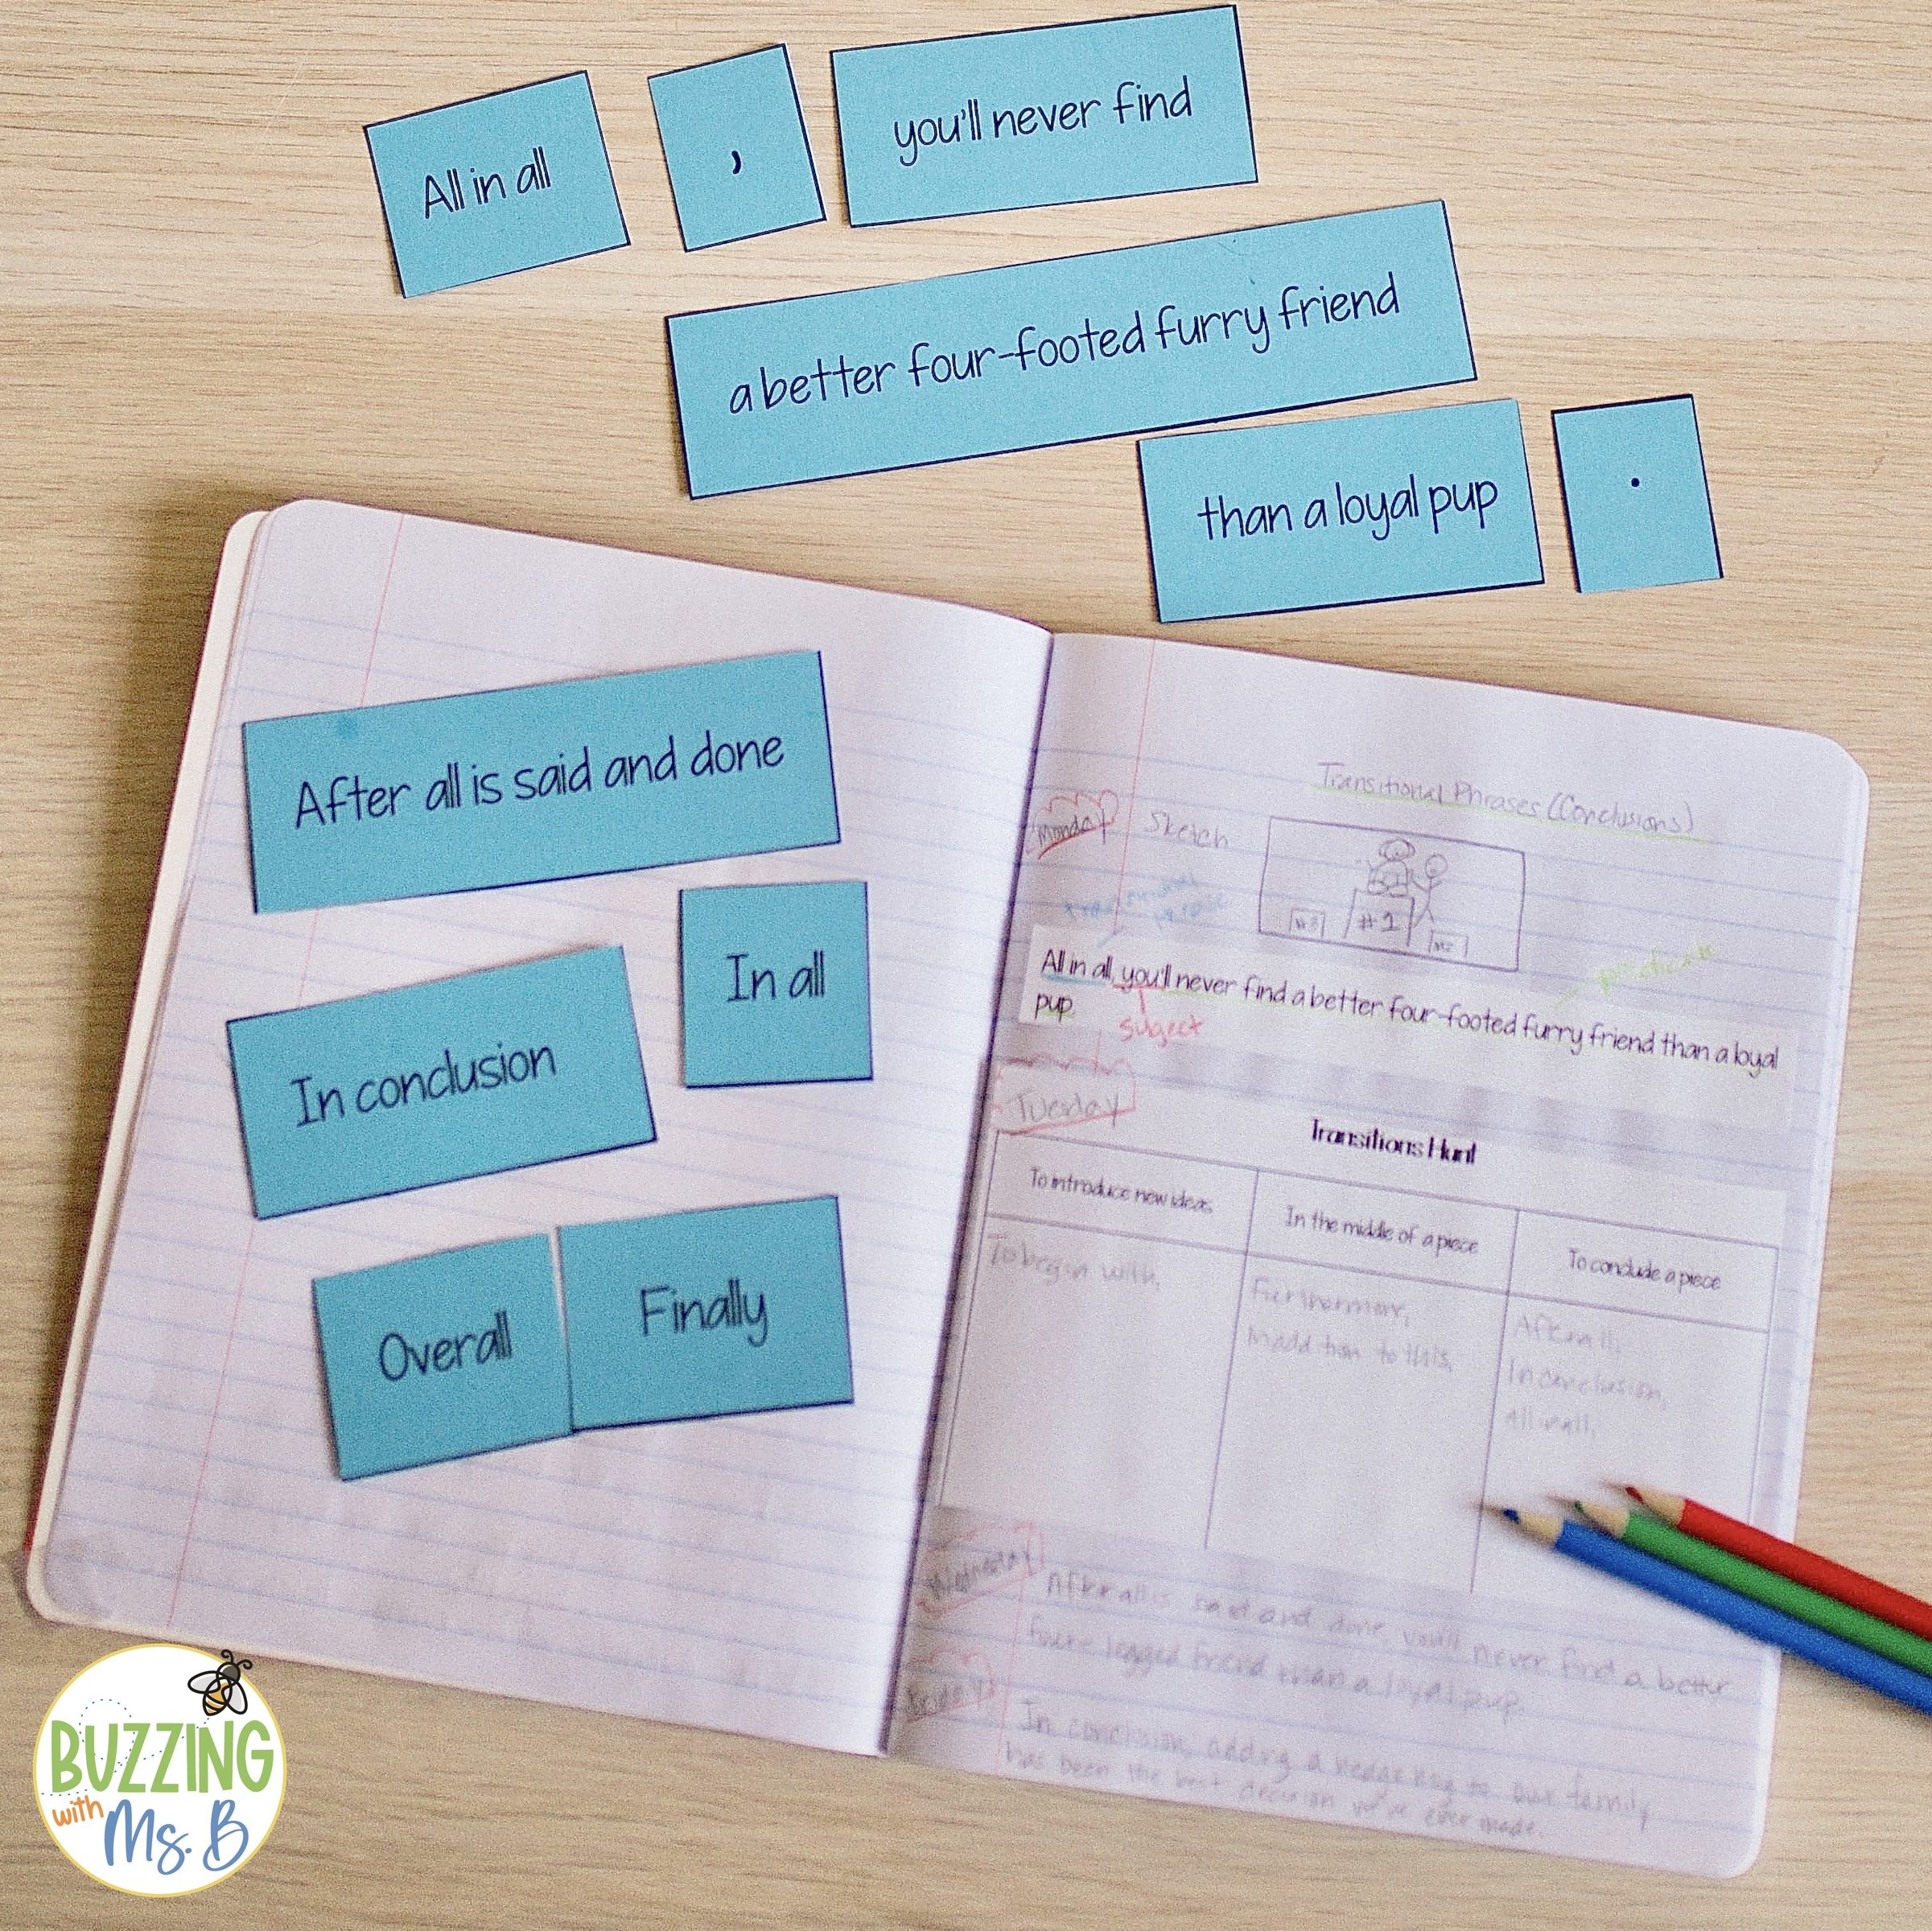 All in all , you'll never find
a better four-footed furry friend
than a loyal pup .
After all is said and done
In all
In conclusion
Overall Finally
Transitional Phrases (Conclusions)
Monday Sketch
#1
All in all, you'll never find a better four-footed furry friend than a loyal
pup.
subject
Tuesday
Transitions Hunt
To introduce new ideas In the middle of a piece To conclude a piece
To begin with, Furthermore, After all,
In addition to this, In conclusion,
All in all,
Wednesday After all is said and done, you'll never find a better
legged friend than a loyal pup.
Friday In conclusion, adding a hedgehog to our family
has been the best decision we've ever made.
BUZZING
with Ms. B